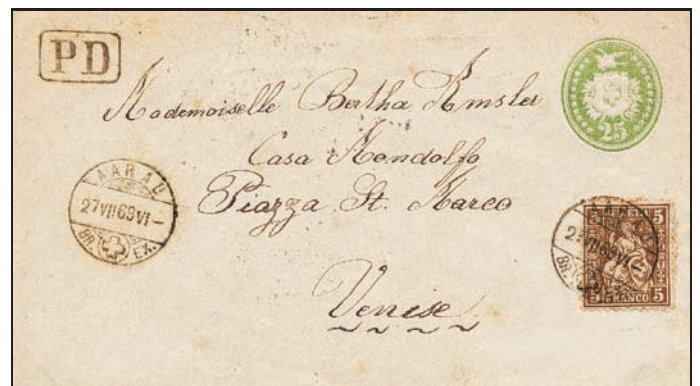 PD
25
Mademoiselle Bertha Amsler
Casa Mondolfo
Piazza St. Marco
Venise
AARAU
27 VII 69 VI –
BR. EX.
AARAU
27 VII 69 VI –
BR.
5 5
5 FRANCO 5